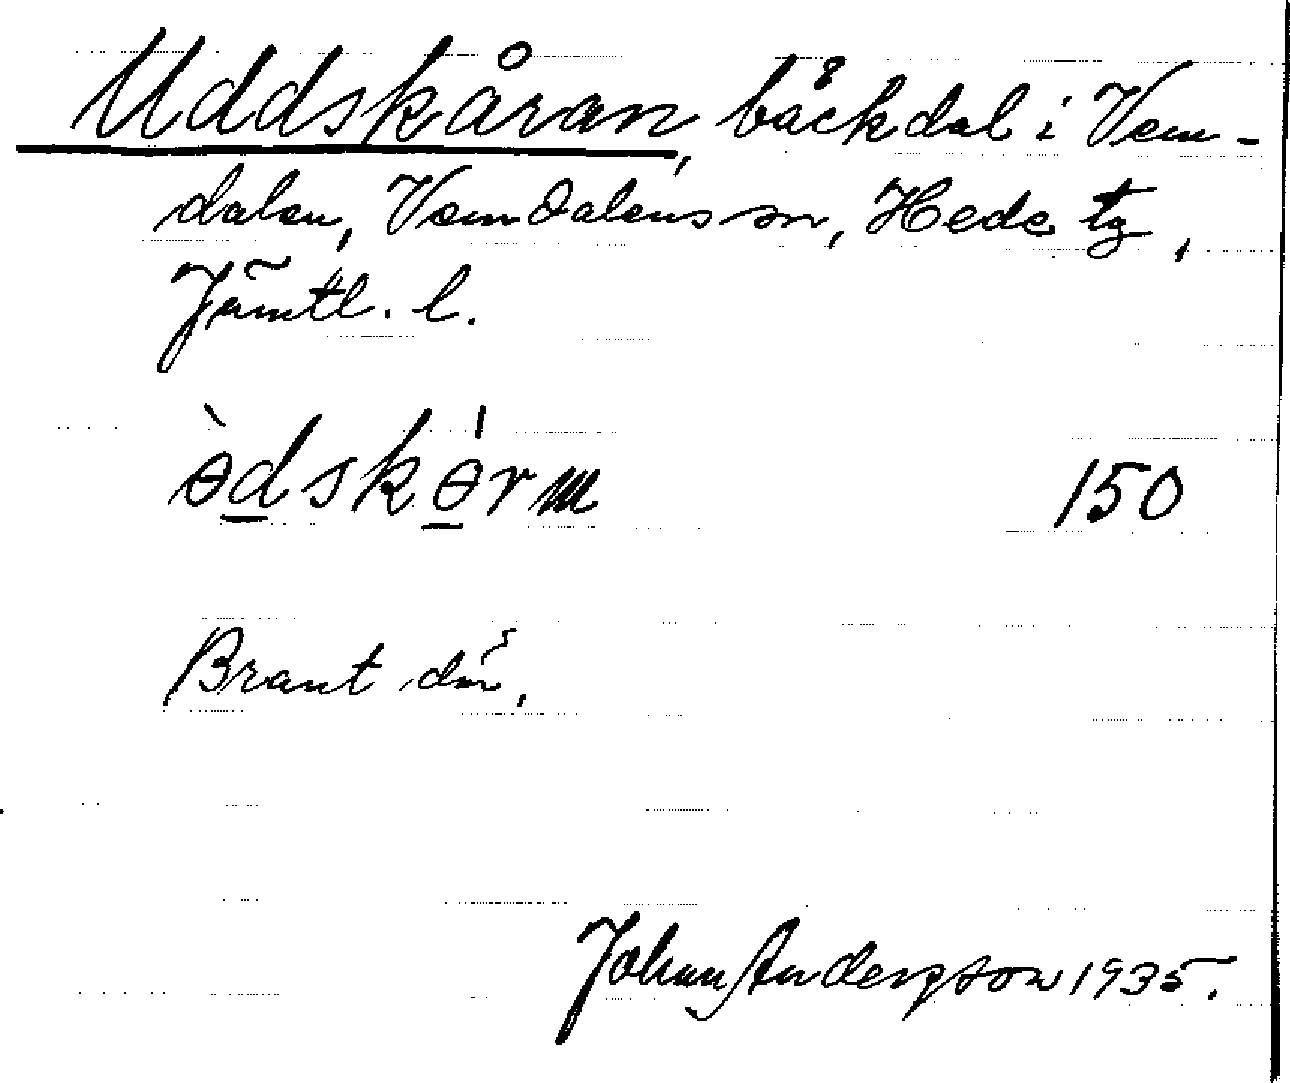 Uddskåran, bäckdal i Vem-
dalen, Vemdalens sn, Hede tg,
Jämtl. l.
ɵ̀d̲skɵ̲́rm 150
Brant där.
Johan Andersson 1935.